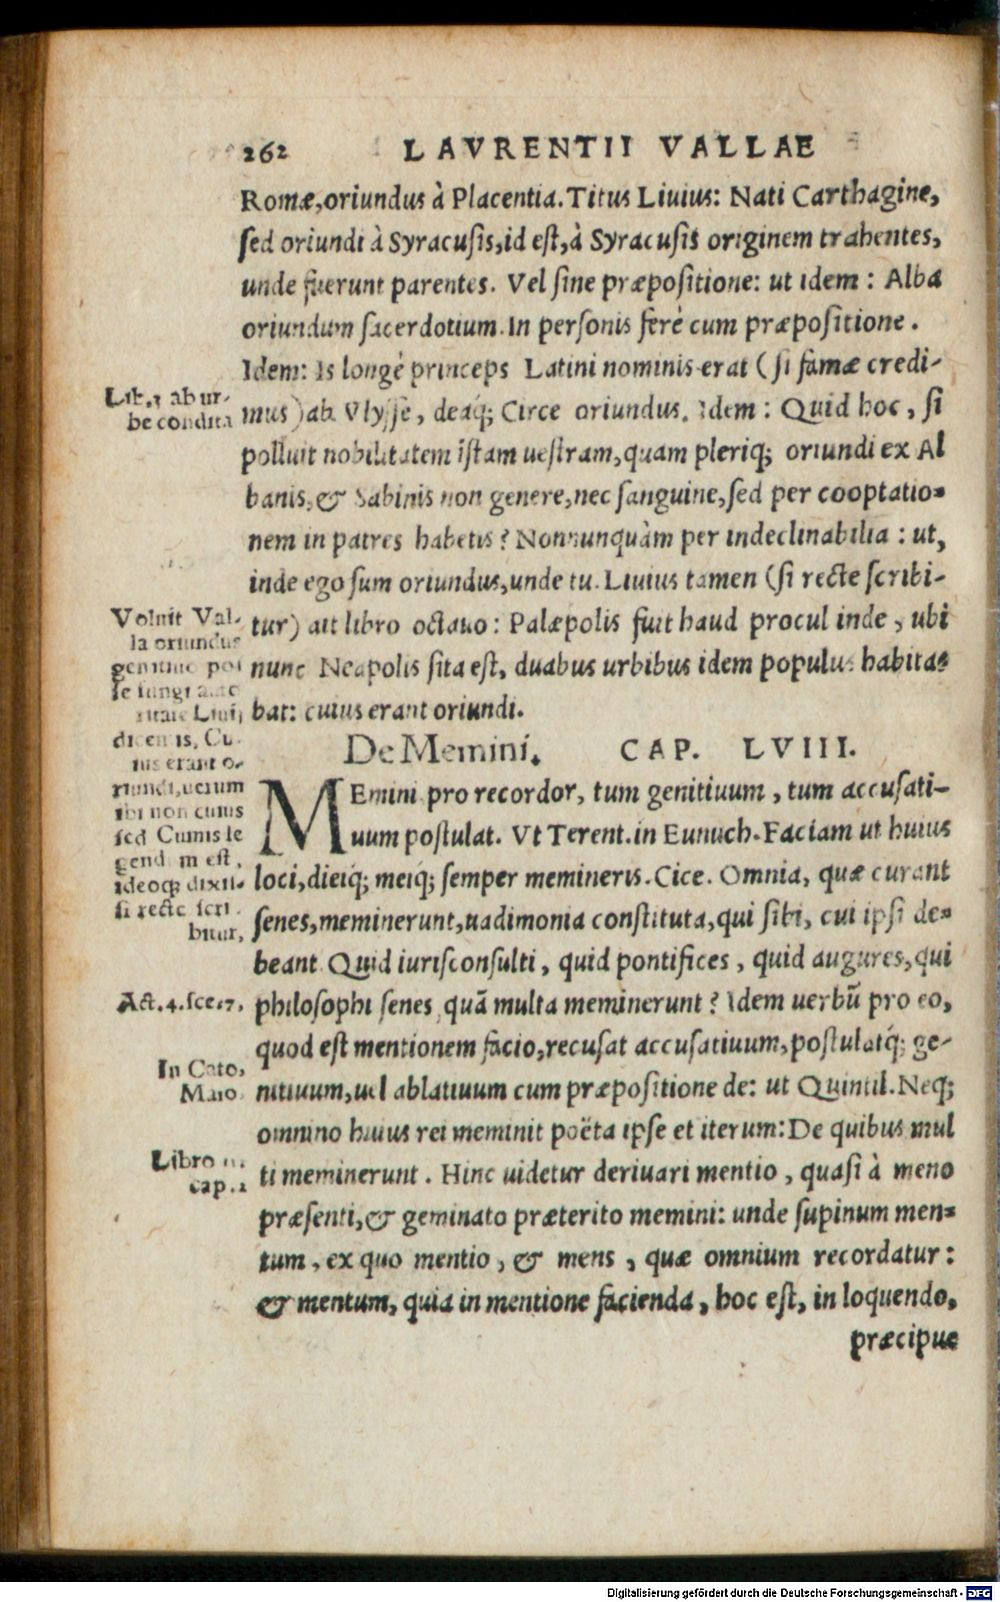 262 LAVRENTII VALLAE
Romæ, oriundus à Placentia. Titus Liuius: Nati Carthagine,
sed oriundi à Syracusis, id est, à Syracusis originem trahentes,
unde fuerunt parentes. Vel sine præpositione: ut idem: Alba
oriundum sacerdotium. In personis ferè cum præpositione.
Idem: Is longè princeps Latini nominis erat (si famæ credi-
mus) ab Vlysse, deaq́; Circe oriundus. Idem: Quid hoc, si
polluit nobilitatem istam uestram, quam pleriq; oriundi ex Al
banis, & Sabinis non genere, nec sanguine, sed per cooptatio=
nem in patres habetis? Nonnunquàm per indeclinabilia: ut,
inde ego sum oriundus, unde tu. Liuius tamen (si recte scribi-
tur) ait libro octauo: Palæpolis fuit haud procul inde, ubi
nunc Neapolis sita est, duabus urbibus idem populus habita=
bat: cuius erant oriundi.
De Memini. CAP. LVIII.
MEmini pro recordor, tum genitiuum, tum accusati-
uum postulat. Vt Terent. in Eunuch. Faciam ut huius
loci, dieiq́; meiq́; semper memineris. Cice. Omnia, quæ curant
senes, meminerunt, uadimonia constituta, qui sibi, cui ipsi de=
beant. Quid iurisconsulti, quid pontifices, quid augures, qui
philosophi senes, quā multa meminerunt? Idem uerbū pro eo,
quod est mentionem facio, recusat accusatiuum, postulatq́; ge-
nitiuum, uel ablatiuum cum præpositione de: ut Quintil. Neq;
omnino huius rei meminit poëta ipse et iterum: De quibus mul
ti meminerunt. Hinc uidetur deriuari mentio, quasi à meno
præsenti, & geminato præterito memini: unde supinum men=
tum, ex quo mentio, & mens, quæ omnium recordatur:
& mentum, quia in mentione facienda, hoc est, in loquendo,
præcipue
Lib.1 ab ur-
be condita
Voluit Val-
la oriundus
genitiuo pos
se iungi auto
ritate Liuij
dicentis, Cu-
ius erant o-
riundi, uerum
ibi non cuius
sed Cumis le
gendum est,
ideoq; dixit
si recte scri-
bitur,
Act.4.sce.7.
In Cato.
Maio
Libro
cap.2